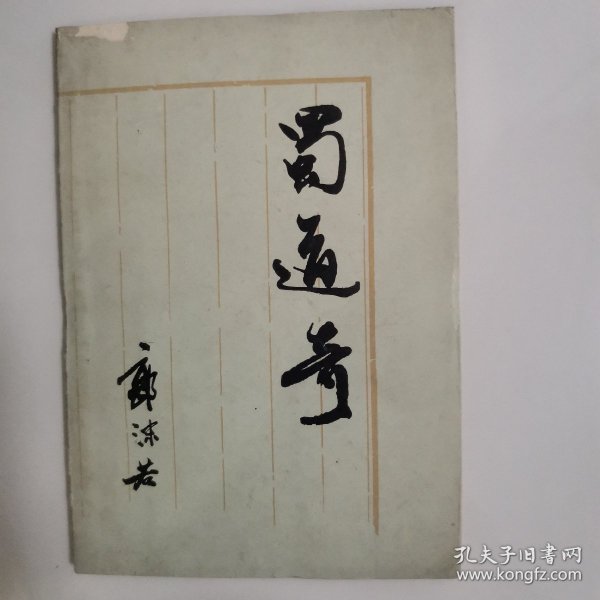 蜀道奇
郭沫若
孔夫子旧書网
www.kongfz.com